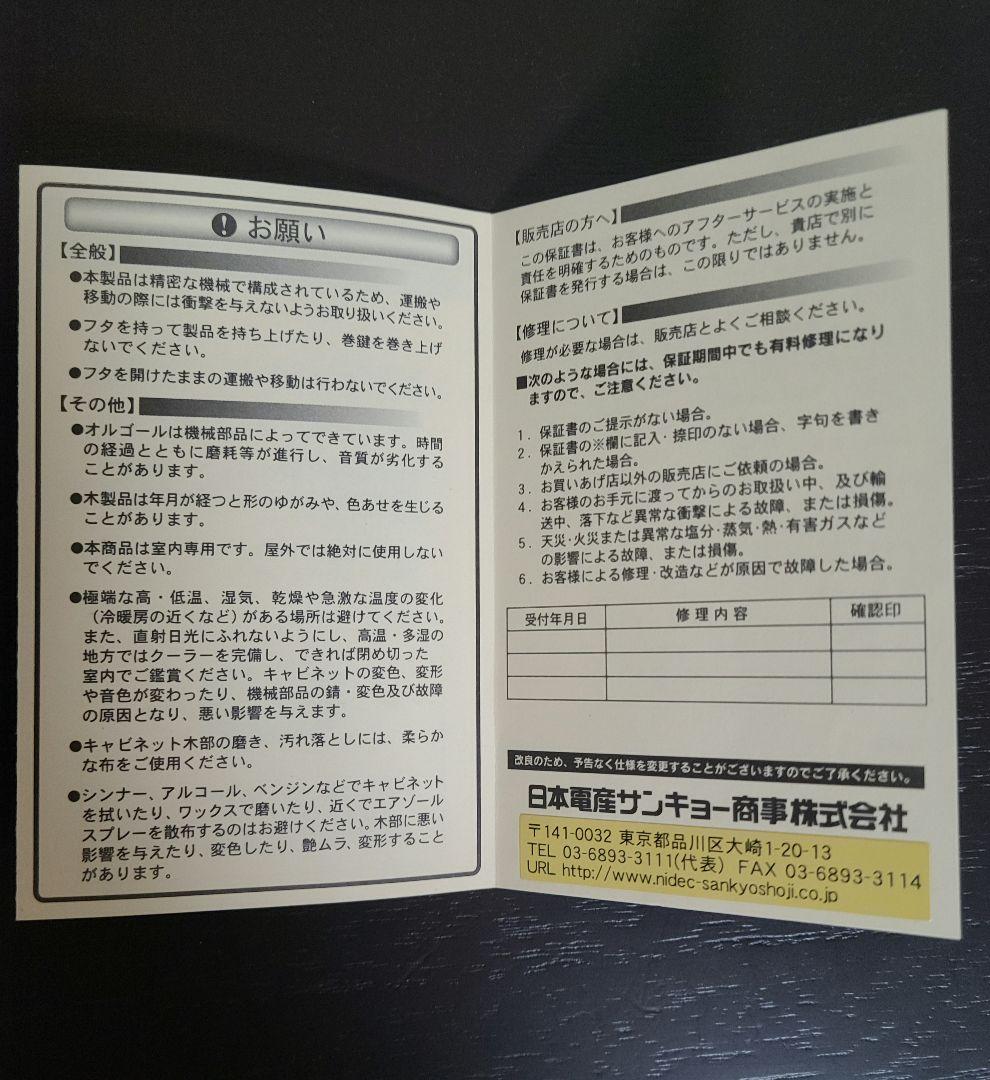 ! お願い
【全般】
●本製品は精密な機械で構成されているため、運搬や
移動の際には衝撃を与えないようお取り扱いください。
●フタを持って製品を持ち上げたり、巻鍵を巻き上げ
ないでください。
●フタを開けたままの運搬や移動は行わないでください。
【その他】
●オルゴールは機械部品によってできています。時間
の経過とともに磨耗等が進行し、音質が劣化する
ことがあります。
●木製品は年月が経つと形のゆがみや、色あせを生じる
ことがあります。
●本商品は室内専用です。屋外では絶対に使用しない
でください。
●極端な高・低温、湿気、乾燥や急激な温度の変化
（冷暖房の近くなど）がある場所は避けてください。
また、直射日光にふれないようにし、高温・多湿の
地方ではクーラーを完備し、できれば閉め切った
室内でご鑑賞ください。キャビネットの変色、変形
や音色が変わったり、機械部品の錆・変色及び故障
の原因となり、悪い影響を与えます。
●キャビネット木部の磨き、汚れ落としには、柔らか
な布をご使用ください。
●シンナー、アルコール、ベンジンなどでキャビネット
を拭いたり、ワックスで磨いたり、近くでエアゾール
スプレーを散布するのはお避けください。木部に悪い
影響を与えたり、変色したり、艶ムラ、変形すること
があります。
【販売店の方へ】
この保証書は、お客様へのアフターサービスの実施と
責任を明確するためのものです。ただし、貴店で別に
保証書を発行する場合は、この限りではありません。
【修理について】
修理が必要な場合は、販売店とよくご相談ください。
■次のような場合には、保証期間中でも有料修理になり
ますので、ご注意ください。
1．保証書のご提示がない場合。
2．保証書の※欄に記入・捺印のない場合、字句を書き
かえられた場合。
3．お買いあげ店以外の販売店にご依頼の場合。
4．お客様のお手元に渡ってからのお取扱い中、及び輸
送中、落下など異常な衝撃による故障、または損傷。
5．天災・火災または異常な塩分・蒸気・熱・有害ガスなど
の影響による故障、または損傷。
6．お客様による修理・改造などが原因で故障した場合。
受付年月日 修理内容 確認印
改良のため、予告なく仕様を変更することがございますのでご了承ください。
日本電産サンキョー商事株式会社
〒141-0032 東京都品川区大崎1-20-13
TEL 03-6893-3111(代表) FAX 03-6893-3114
URL http://www.nidec-sankyoshoji.co.jp